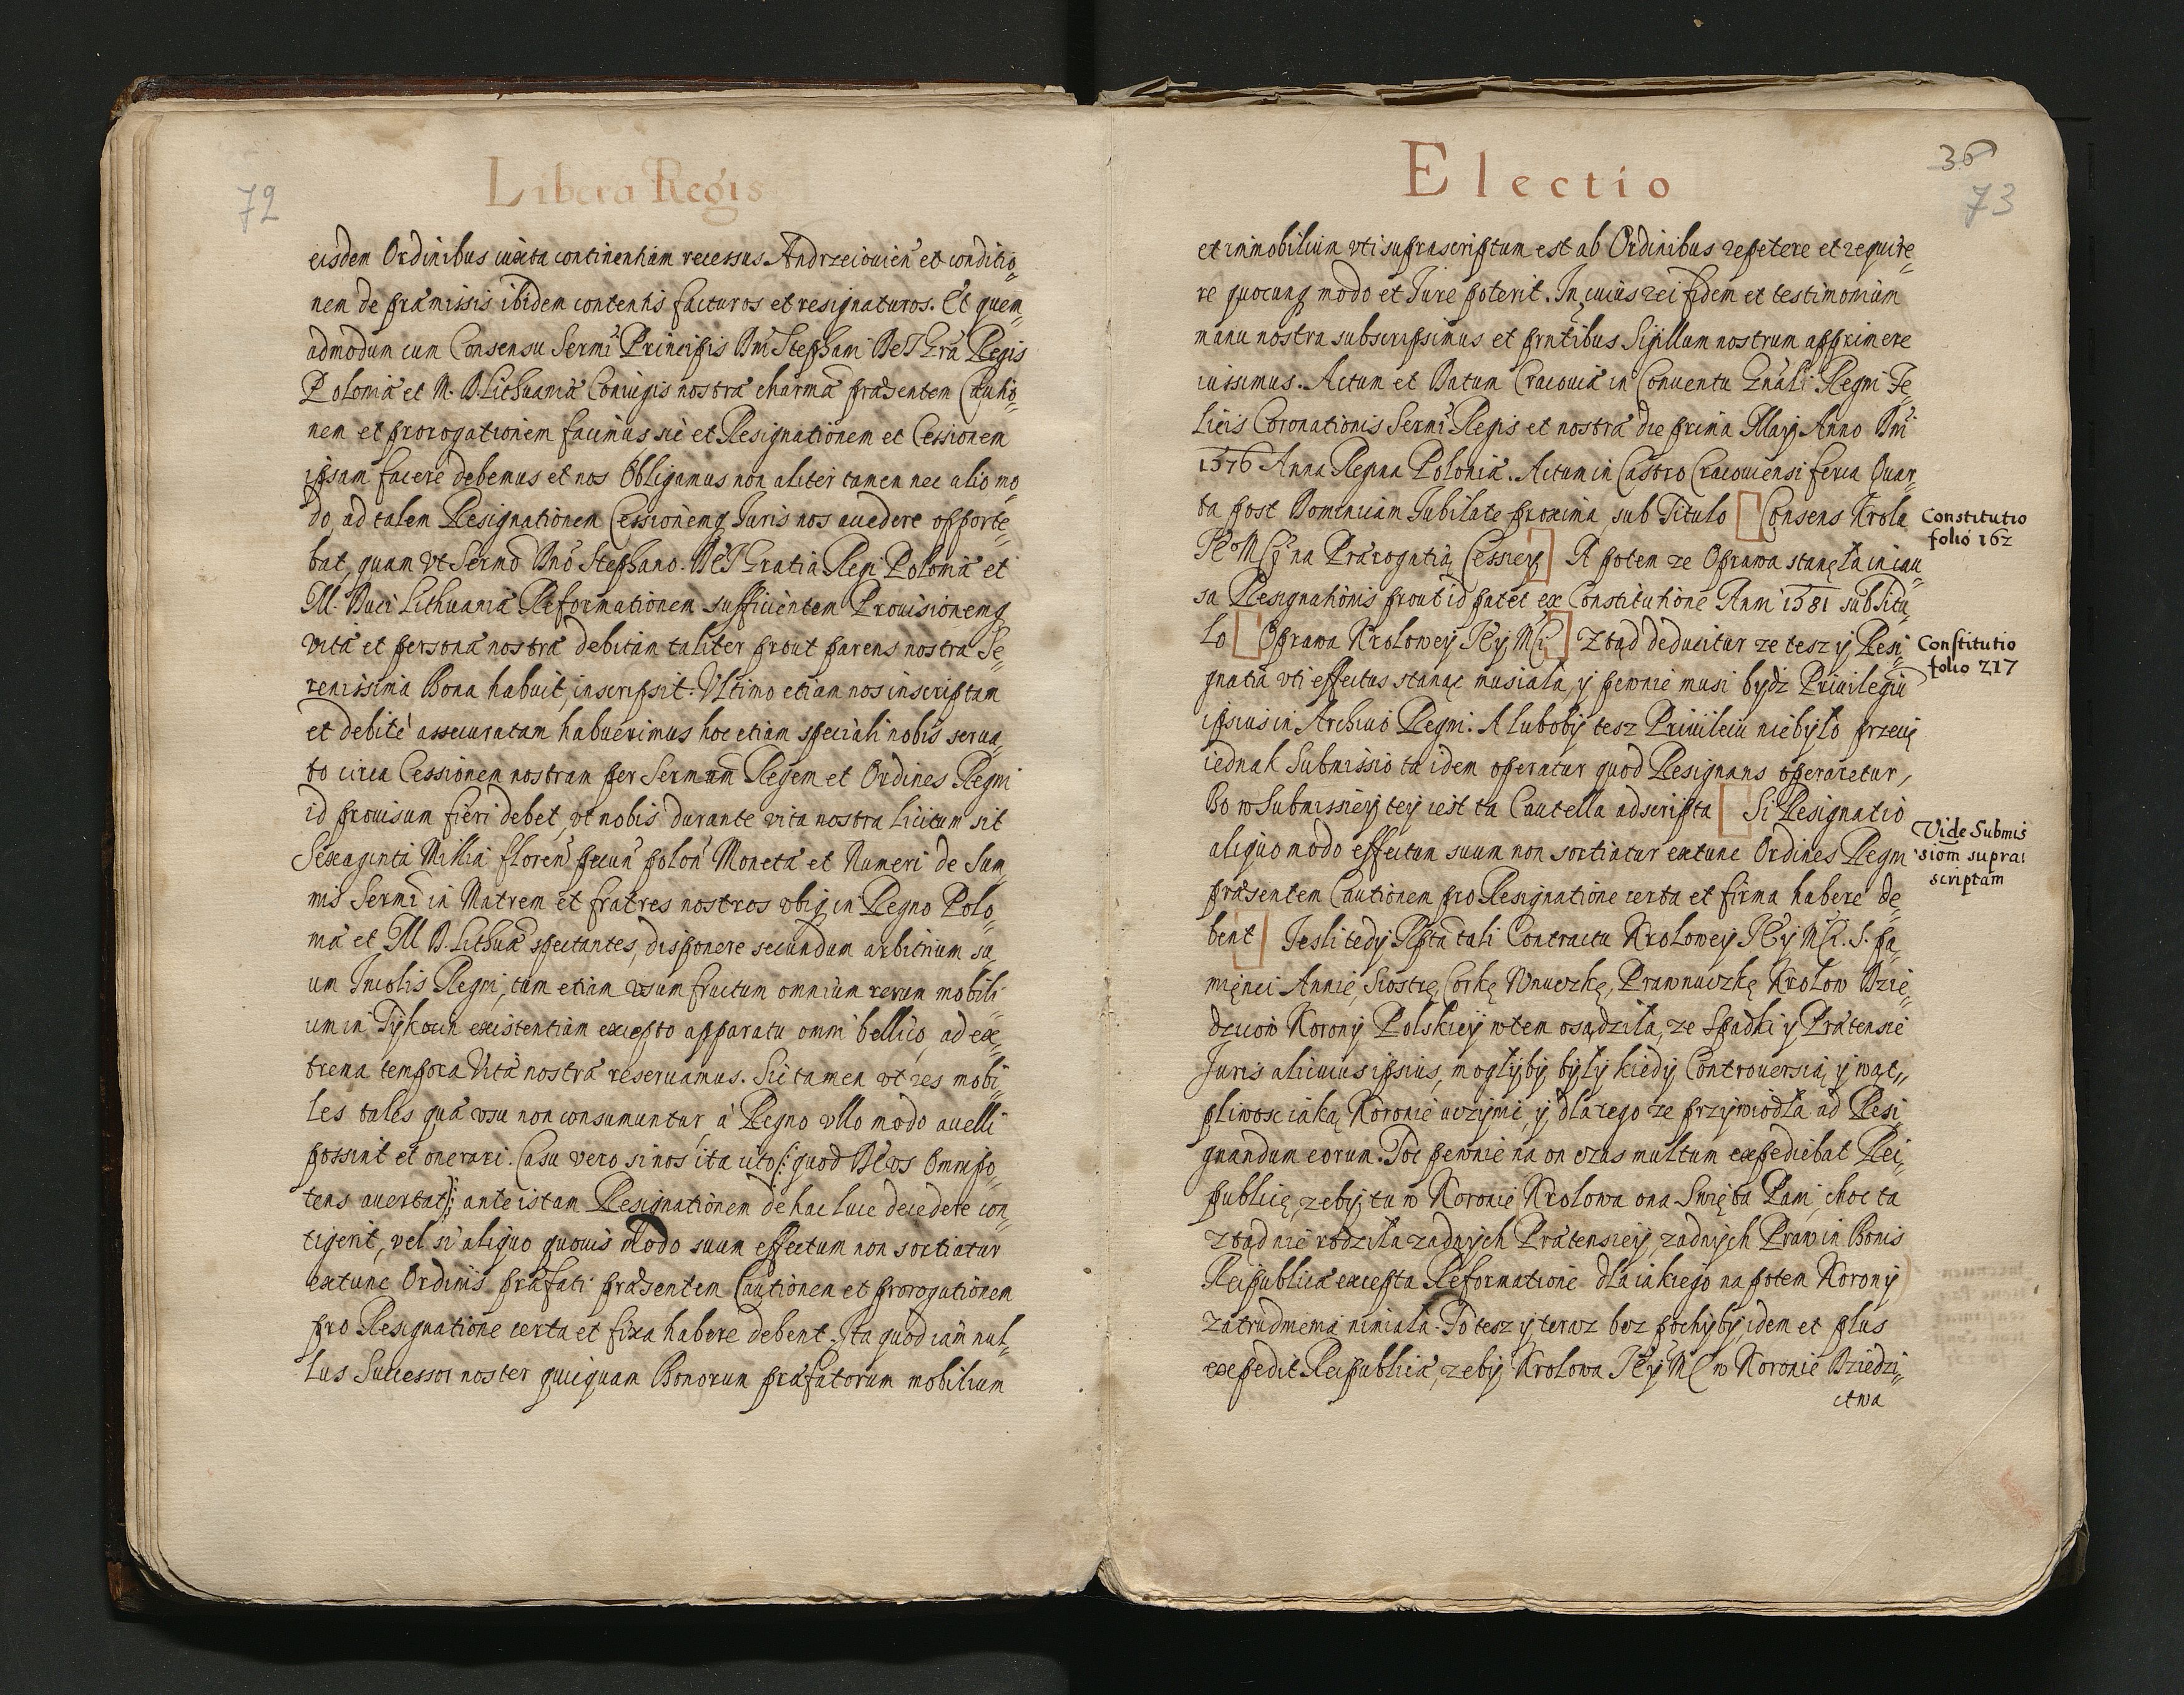 72
Libera Regis
eisdem Ordinibus iuxta continentiam recessus Andrzeiouien̄ et conditio„
nem de præmissis ibidem contentis facturos et resignaturos. Et quem„
admodum cum Consensu Sermi Principis Dni Stephani Dei Gra Regis
Poloniæ et M. D. Lithuaniæ Coniugis nostræ charmæ præsentem Cautio„
nem et prorogationem facimus sic et Resignationem et Cessionem
ipsam facere debemus et nos Obligamus non aliter tamen nec alio mo„
do, ad talem Resignationem Cessionemq Juris nos accedere opporte„
bat, quam vt Sermo Dno Stephano. Dei Gratia Regi Poloniæ et
M. Duci Lithuaniæ Reformationem sufficientem Prouisionemq
vitæ et personæ nostræ debitam taliter prout parens nostra Se„
renissima Bona habuit, inscripsit. Vltimo etiam nos inscriptam
et debite assecuratam habuerimus hoc etiam speciali nobis serua„
to circa Cessionem nostram per Sermum Regem et Ordines Regni
id prouisum fieri debet, vt nobis durante vita nostra licitum sit
Sexaginta Millia floren̄ pecun̄ polon̄ Monetæ et Numeri de Sum„
mis Sermi in Matrem et fratres nostros vbiq in Regno Polo„
niæ et M D. Lithuæ spectantes, disponere secundum arbitrium su„
um Incolis Regni, tum etiam vsum fructum omnium rerum mobili„
um in Tykocin existentiam excepto apparatu omni bellico, ad ex„
trema tempora Vitæ nostræ reseruamus. Sic tamen vt res mobi„
les tales quæ vsu non consumuntur, à Regno vllo modo auelli
possint et onerari. Casu vero si nos ita cito (: quod Deus Omnipo„
tens auertat :) ante istam Resignationem de hac luce decedere con„
tigerit, vel si aliquo quouis modo suum effectum non sortiatur
extunc Ordinis præfati præsentem Cautionem et prorogationem
pro Resignatione certa et fixa habere debent. Ita quod iam nul„
lus Successor noster quicquam Bonorum præfatorum mobilium
36
73
Electio
et immobilium vti suprascriptum est ab Ordinibus repetere et require„
re quocunq modo et Jure poterit. In cuius rei fidem et testimonium
manu nostra subscripsimus et pntibus Sigillum nostrum apprimere
iussimus. Actum et Datum Cracouiæ in Conuentu Gnali Regni Fe„
licis Coronationis Sermi Regis et nostræ die prima Maij Anno Dni
1576 Anna Regina Poloniæ. Actum in Castro Cracouiensi feria Quar„
ta post Dominicam Jubilate proxima, sub Titulo [ Consens Krola
Je° M Cz na Prærogatią Cessiey ] A potem ze Oprawa stanęła in cau„
sa Resignationis prout id patet ex Constitutione Anni 1581 sub Titu„
lo [ Oprawa Krolowey Jey Mci ] Ztąd deducitur ze tesz y Resi„
gnatia vti effectus stanąc musiala, y pewnie musi bydz Priuilegiū
ipsius in Archiuo Regni. A luboby tesz Priuileiu niebyło przecię
iednak Submissio ta idem operatur quod Resignans operaretur,
Bo w Submissiey tey iest ta Cautella adscripta [ Si Resignatio
aliquo modo effectum suum non sortiatur extunc Ordines Regni
præsentem Cautionem pro Resignatione certa et firma habere de„
bent ] Jesli tedy Rpta tali Contractu Krolowey Jey M Ci. S. pa„
mięnci Annie, Siostrę, Corkę Wnuczkę, Prawnuczkę Krolow Dzie„
dzicow Korony Polskiey wtem osądziła, ze Spadki y Prætensie
Juris alicuius ipsius, mogłyby były kiedy Controuersią y wąt„
pliwosc iaką Koronie uczynic, y dlatego ze przywiodła ad Resi„
gnandum eorum. Toc pewnie na on czas multum expediebat Rei„
publicę, zeby tu w Koronie Krolowa ona Swięta Pani, choc ta
ztąd nie rodziła zadnych Prætensiey, zadnych Praw in Bonis
Reipublicæ excepta Reformatione dla iakiego na potem Korony
zatrudnienia nimiała. To tesz y teraz bez pochyby idem et plus
expedit Reipublicæ, zeby Krolowa Jey M C w Koronie Dziedzi„
ctwa
Constitutio
folio 162
Constitutio
folio 217
Vide Submis
siom supra
scriptam